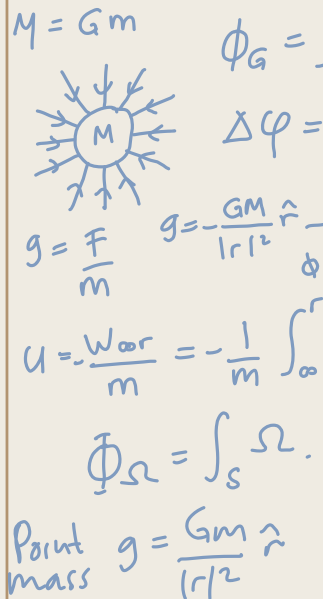 M = Gm
ϕ_G =
M
Δφ =
g = F/m
g = - GM/|r|² r̂
ϕ
U = - W∞r/m = - 1/m ∫_∞^r
Φ_Ω = ∫_S Ω .
Point mass g = Gm/|r|² r̂